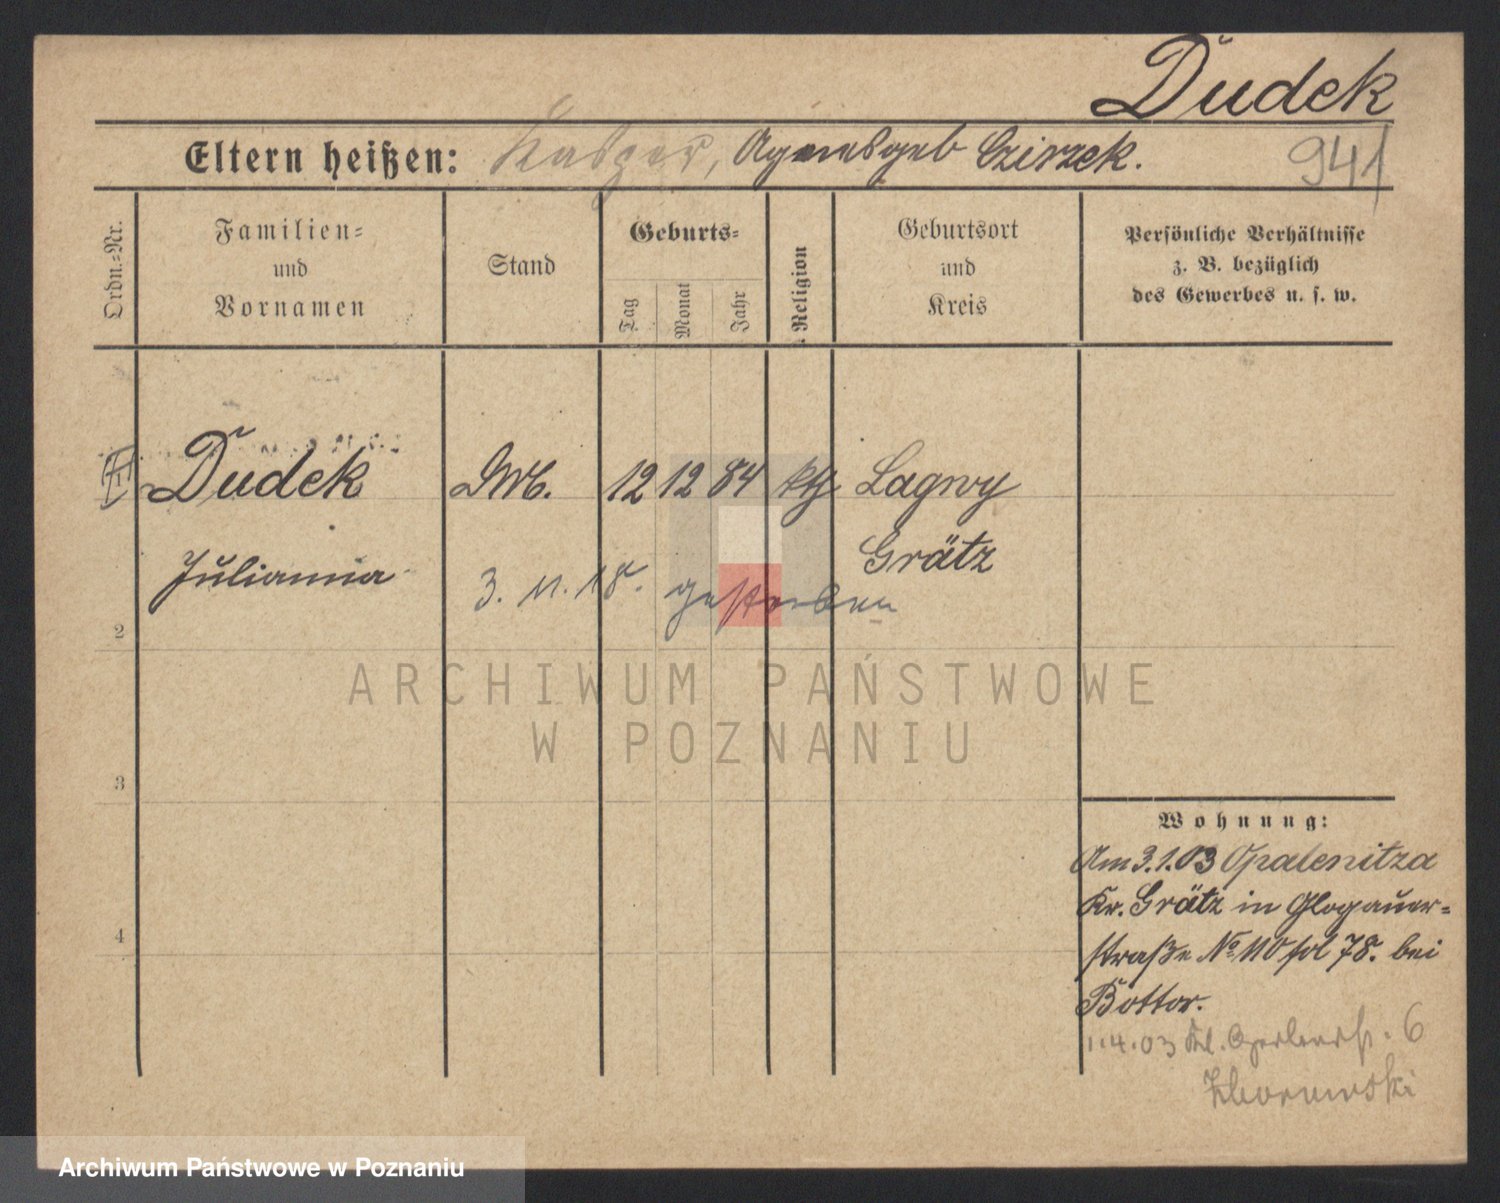 Dudek
Eltern heißen: Kasper, Agnes geb Czirzek. 941
Ordn.-Nr.
Familien-
und
Vornamen
Stand
Geburts-
Tag
Monat
Jahr
Religion
Geburtsort
und
Kreis
Persönliche Verhältnisse
z. B. bezüglich
des Gewerbes u. s. w.
Dudek 12 12 84 kth Lagwy
Grätz
Julianna
3. 11. 18. gestorben
2
ARCHIWUM PAŃSTWOWE
W POZNANIU
3
Wohnung:
Am 3.1.03 Opalenitza
Kr. Grätz in Glogauer-
straße No 110 78. bei
Bottor.
1.4.03 Kl. 6
4
Archiwum Państwowe w Poznaniu